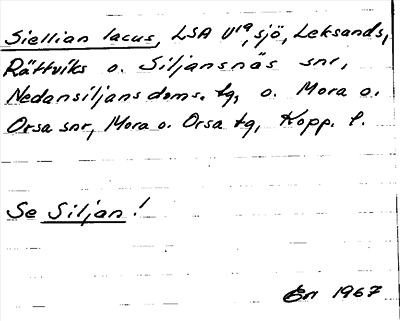 Siellian lacus, LSA V19, sjö, Leksands,
Rättviks o. Siljansnäs snr,
Nedansiljans doms. tg, o. Mora o.
Orsa snr, Mora o. Orsa tg, Kopp. l.
Se Siljan!
1967